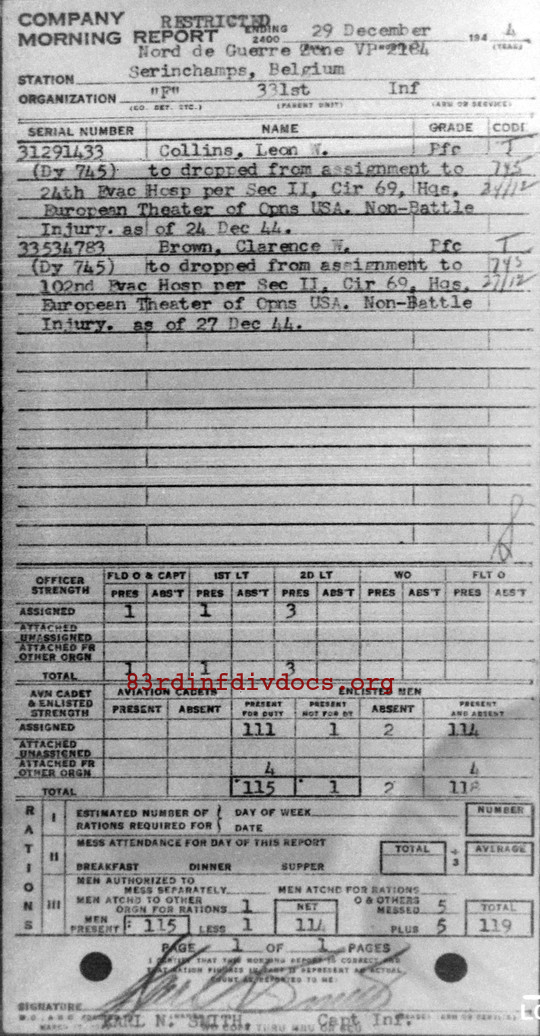 COMPANY RESTRICTED
MORNING REPORT ENDING 2400 29 December 194 4
Nord de Guerre Zone VP
STATION Serinchamps, Belgium
ORGANIZATION "F" 331st Inf
(CO. DET. ETC.) (PARENT UNIT) (ARM OR SERVICE)
SERIAL NUMBER NAME GRADE CODE
31291433 Collins, Leon W. Pfc T
(Dy 745) to dropped from assignment to 745
24th Evac Hosp per Sec II, Cir 69, Hqs, 24/12
European Theater of Opns USA. Non-Battle
Injury. as of 24 Dec 44.
33534783 Brown, Clarence W. Pfc T
(Dy 745) to dropped from assignment to 745
102nd Evac Hosp per Sec II, Cir 69, Hqs, 27/12
European Theater of Opns USA. Non-Battle
Injury. as of 27 Dec 44.
OFFICER STRENGTH FLD O & CAPT 1ST LT 2D LT WO FLT O
PRES ABS'T PRES ABS'T PRES ABS'T PRES ABS'T PRES ABS'T
ASSIGNED 1 1 3
ATTACHED UNASSIGNED
ATTACHED FR OTHER ORGN
TOTAL 1 1 3
83rdinfdivdocs.org
AVN CADET & ENLISTED STRENGTH AVIATION CADETS ENLISTED MEN
PRESENT ABSENT PRESENT FOR DUTY PRESENT NOT FOR DY ABSENT PRESENT AND ABSENT
ASSIGNED 111 1 2 114
ATTACHED UNASSIGNED
ATTACHED FR OTHER ORGN 4 4
TOTAL 115 1 2 118
RATIONS
I ESTIMATED NUMBER OF RATIONS REQUIRED FOR DAY OF WEEK DATE NUMBER
II MESS ATTENDANCE FOR DAY OF THIS REPORT TOTAL ÷ 3 AVERAGE
BREAKFAST DINNER SUPPER
III MEN AUTHORIZED TO MESS SEPARATELY MEN ATCHD FOR RATIONS
MEN ATCHD TO OTHER ORGN FOR RATIONS 1 NET O & OTHERS MESSED 5 TOTAL
MEN PRESENT 115 LESS 1 114 PLUS 5 119
PAGE 1 OF 1 PAGES
I CERTIFY THAT THIS MORNING REPORT IS CORRECT AND
SIGNATURE
KARL N. SMITH Capt Inf.